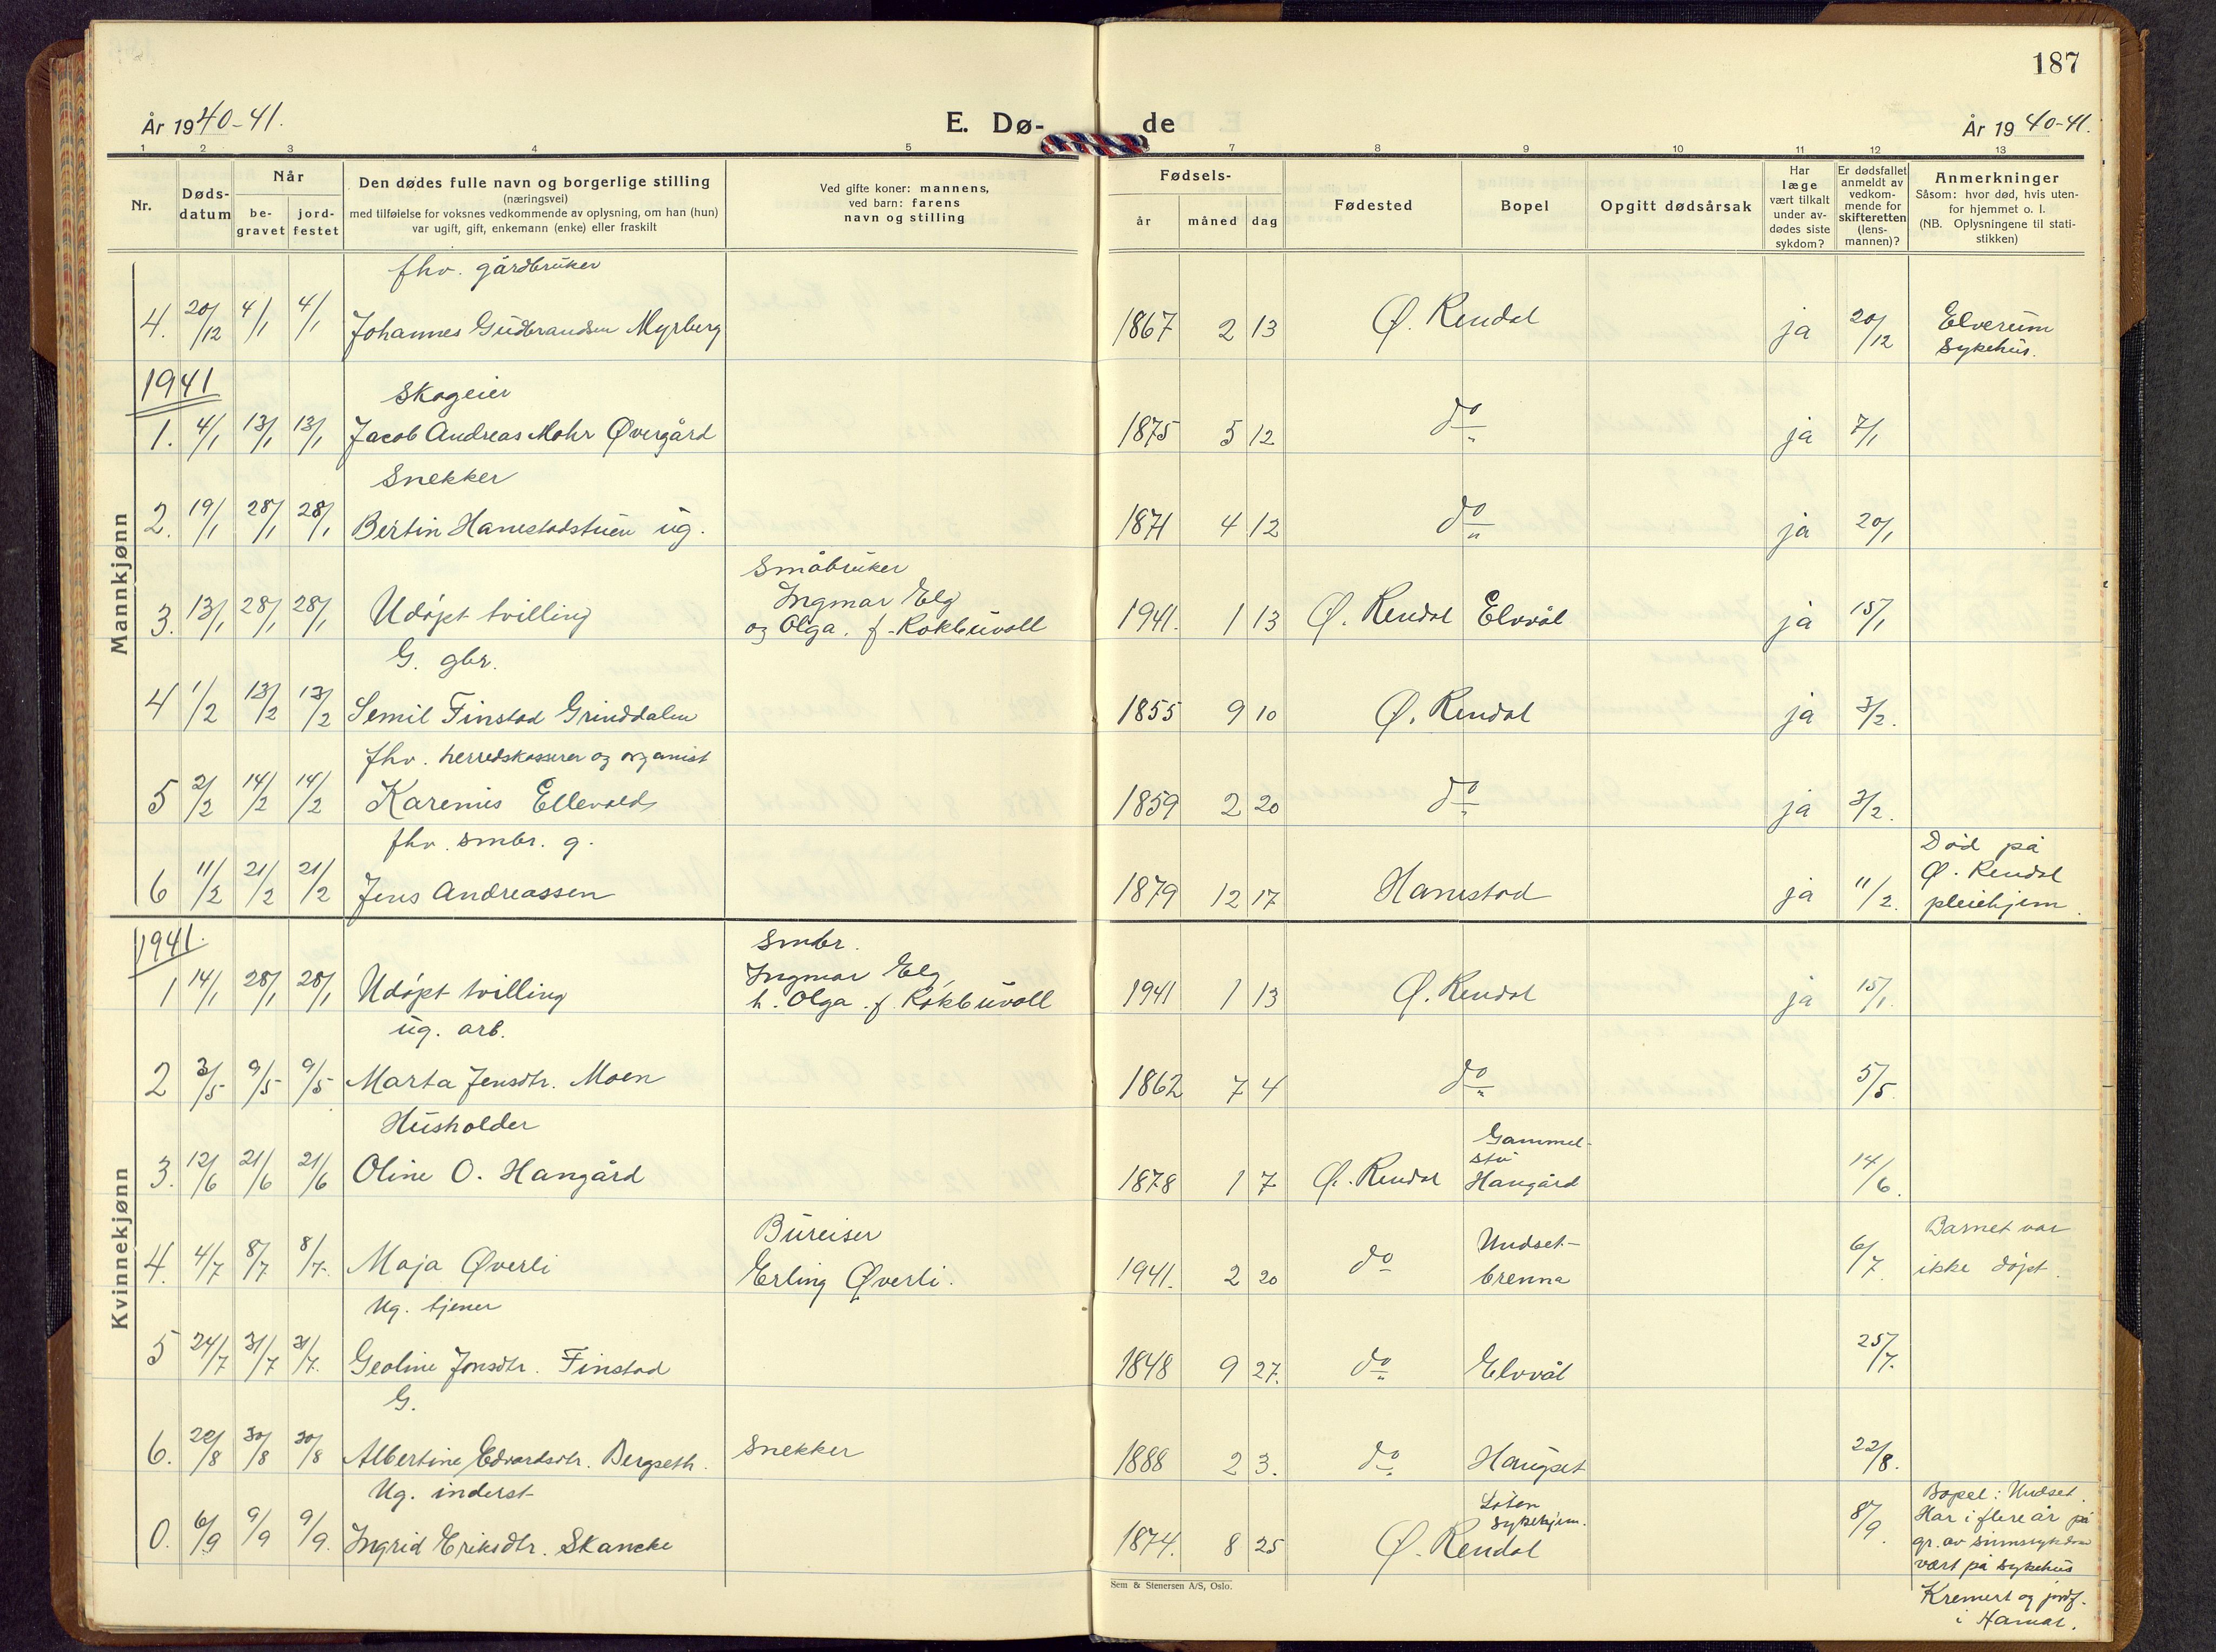 187
År 1940-41.
E. Dø-
de
År 1940-41.
1 2 3 4 5 6 7 8 9 10 11 12 13
Nr.
Døds-
datum
Når
be-
gravet
jord-
festet
Den dødes fulle navn og borgerlige stilling
(næringsvei)
med tilføielse for voksnes vedkommende av oplysning, om han (hun)
var ugift, gift, enkemann (enke) eller fraskilt
Ved gifte koner: mannens,
ved barn: farens
navn og stilling
Fødsels-
år måned dag
Fødested
Bopel
Opgitt dødsårsak
Har
læge
vært tilkalt
under av-
dødes siste
sykdom?
Er dødsfallet
anmeldt av
vedkom-
mende for
skifteretten
(lens-
mannen)?
Anmerkninger
Såsom: hvor død, hvis uten-
for hjemmet o. l.
(NB. Oplysningene til stati-
stikken)
Mannkjønn
fhv. gårdbruker
4. 20/12 4/1 4/1 Johannes Gudbrandsen Myrberg 1867 2 13 Ø. Rendal ja 20/12 Elverum
sykehus.
1941
Skogeier
1. 4/1 13/1 13/1 Jacob Andreas Mohr Øvergård 1875 5 12 do ja 7/1
Snekker
2. 19/1 28/1 28/1 Bertin Hanestadstuen ug. 1871 4 12 do ja 20/1
Småbruker
Ingmar Elg
3. 13/1 28/1 28/1 Udøpt tvilling og Olga. f. Rokkuvoll 1941. 1 13 Ø. Rendal Elvål ja 15/1
G. gbr.
4 1/2 13/2 13/2 Semil Finstad Grinddalen 1855 9 10 Ø. Rendal ja 3/2.
fhv. herredskasserer og organist
5 2/2 14/2 14/2 Karenus Ellevold 1859 2 20 do ja 3/2.
fhv. smbr. g.
6 11/2 21/2 21/2 Jens Andreassen 1879 12 17 Hanestad ja 11/2. Død på
Ø. Rendal
pleiehjem.
Kvinnekjønn
1941.
smbr.
Ingmar Elg,
1 14/1 28/1 28/1 Udøpt tvilling h. Olga. f. Rokkuvoll 1941 1 13 Ø. Rendal ja 15/1.
ug. arb.
2 3/5 9/5 9/5 Marta Jensdtr. Moen 1862 7 4 do 5/5
Husholder
3. 12/6 21/6 21/6 Oline O. Hangård 1878 1 7 Ø. Rendal Gammel-
stu
Hangård 14/6.
Bureiser
4. 4/7 8/7 8/7. Maja Øverli Erling Øverli. 1941. 2 20 do Undset-
brenna 6/7. Barnet var
ikke døpt.
Ug. tjener
5 24/7 31/7 31/7. Geoline Jonsdtr. Finstad 1848 9 27. do Elvål 25/7.
G.
6. 20/8 30/8 30/8 Albertine Edvardsdtr. Bergseth. snekker 1888 2 3. do Haugset 22/8.
Ug. inderst
0. 6/9 9/9 9/9. Ingrid Eriksdtr. Skancke 1874. 8 25 Ø. Rendal Løten
sykehjem. 8/9. Bopel: Undset.
Har i flere år på
gr. av sinnssykdom
vært på sykehus
Kremert og jordf.
i Hamar.
Sem & Stenersen A/S, Oslo.